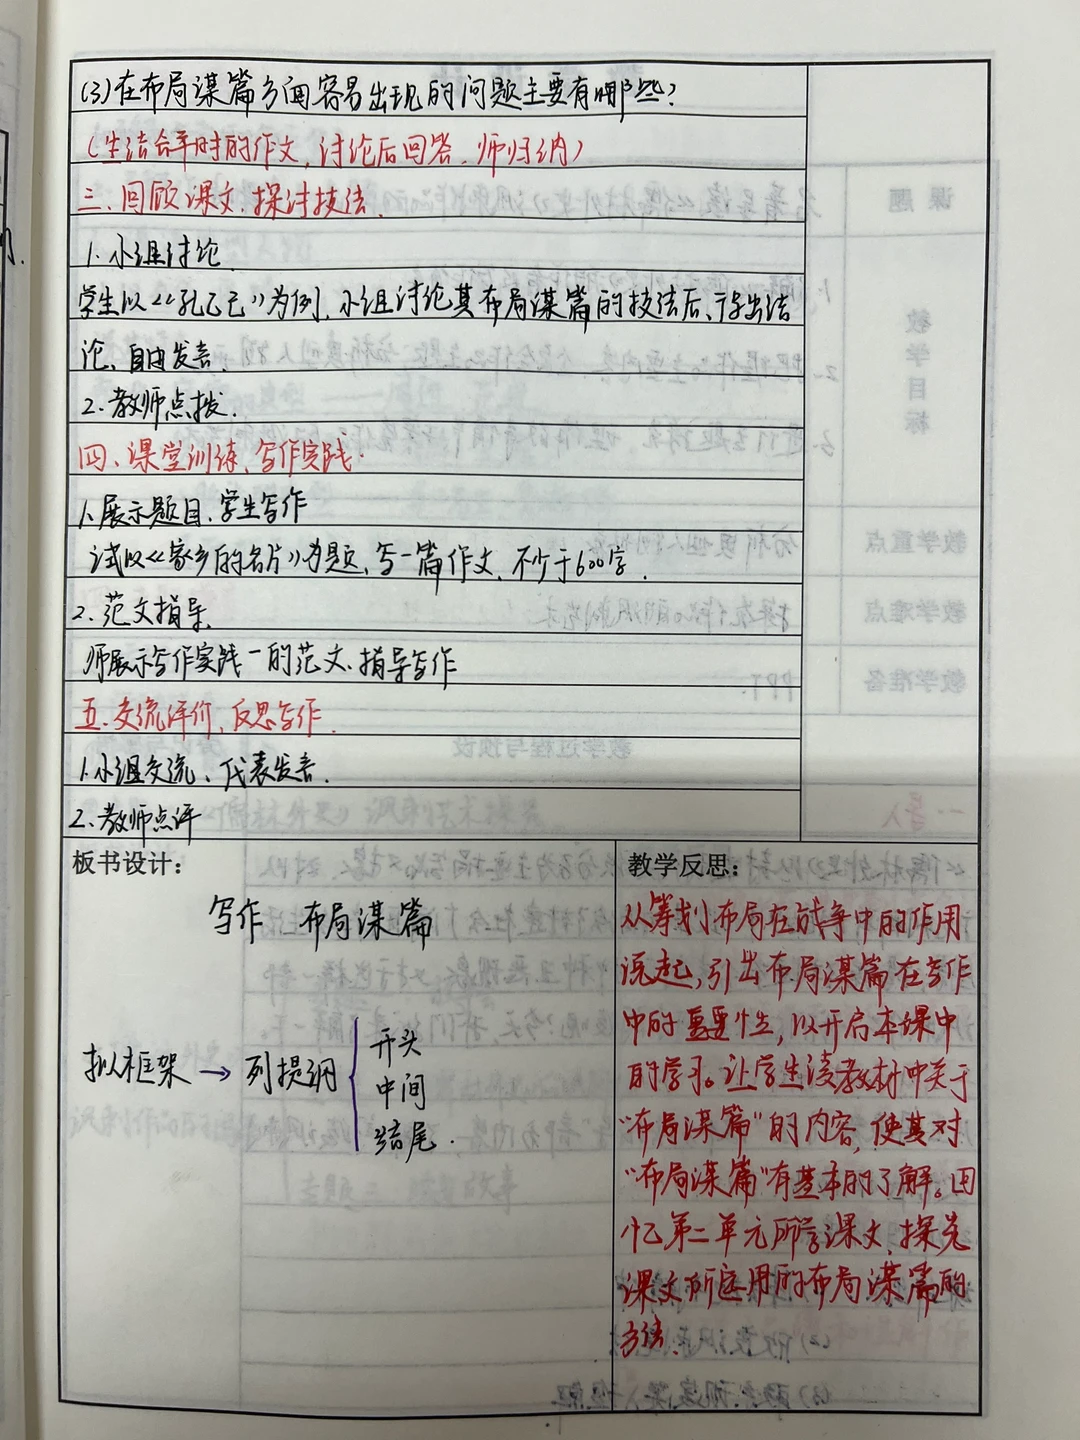 (3)在布局谋篇方面容易出现的问题主要有哪些?
(生结合平时的作文,讨论后回答.师归纳)
三、回顾课文,探讨技法.
1.小组讨论
学生以《孔乙己》为例,小组讨论其布局谋篇的技法后,得出结
论,自由发言.
2.教师点拨.
四、课堂训练,写作实践.
1.展示题目,学生写作
试以《家乡的名片》为题,写一篇作文,不少于600字.
2.范文指导.
师展示写作实践一的范文,指导写作
五.交流评价,反思写作.
1.小组交流、代表发言.
2.教师点评
板书设计:
写作 布局谋篇
拟框架→列提纲
开头
中间
结尾.
教学反思:
从筹划布局在战争中的作用
说起,引出布局谋篇在写作
中的重要性,以开启本课中
的学习。让学生读教材中关于
“布局谋篇”的内容,使其对
“布局谋篇”有基本的了解。回
忆第二单元所学课文,探究
课文所运用的布局谋篇的
方法.